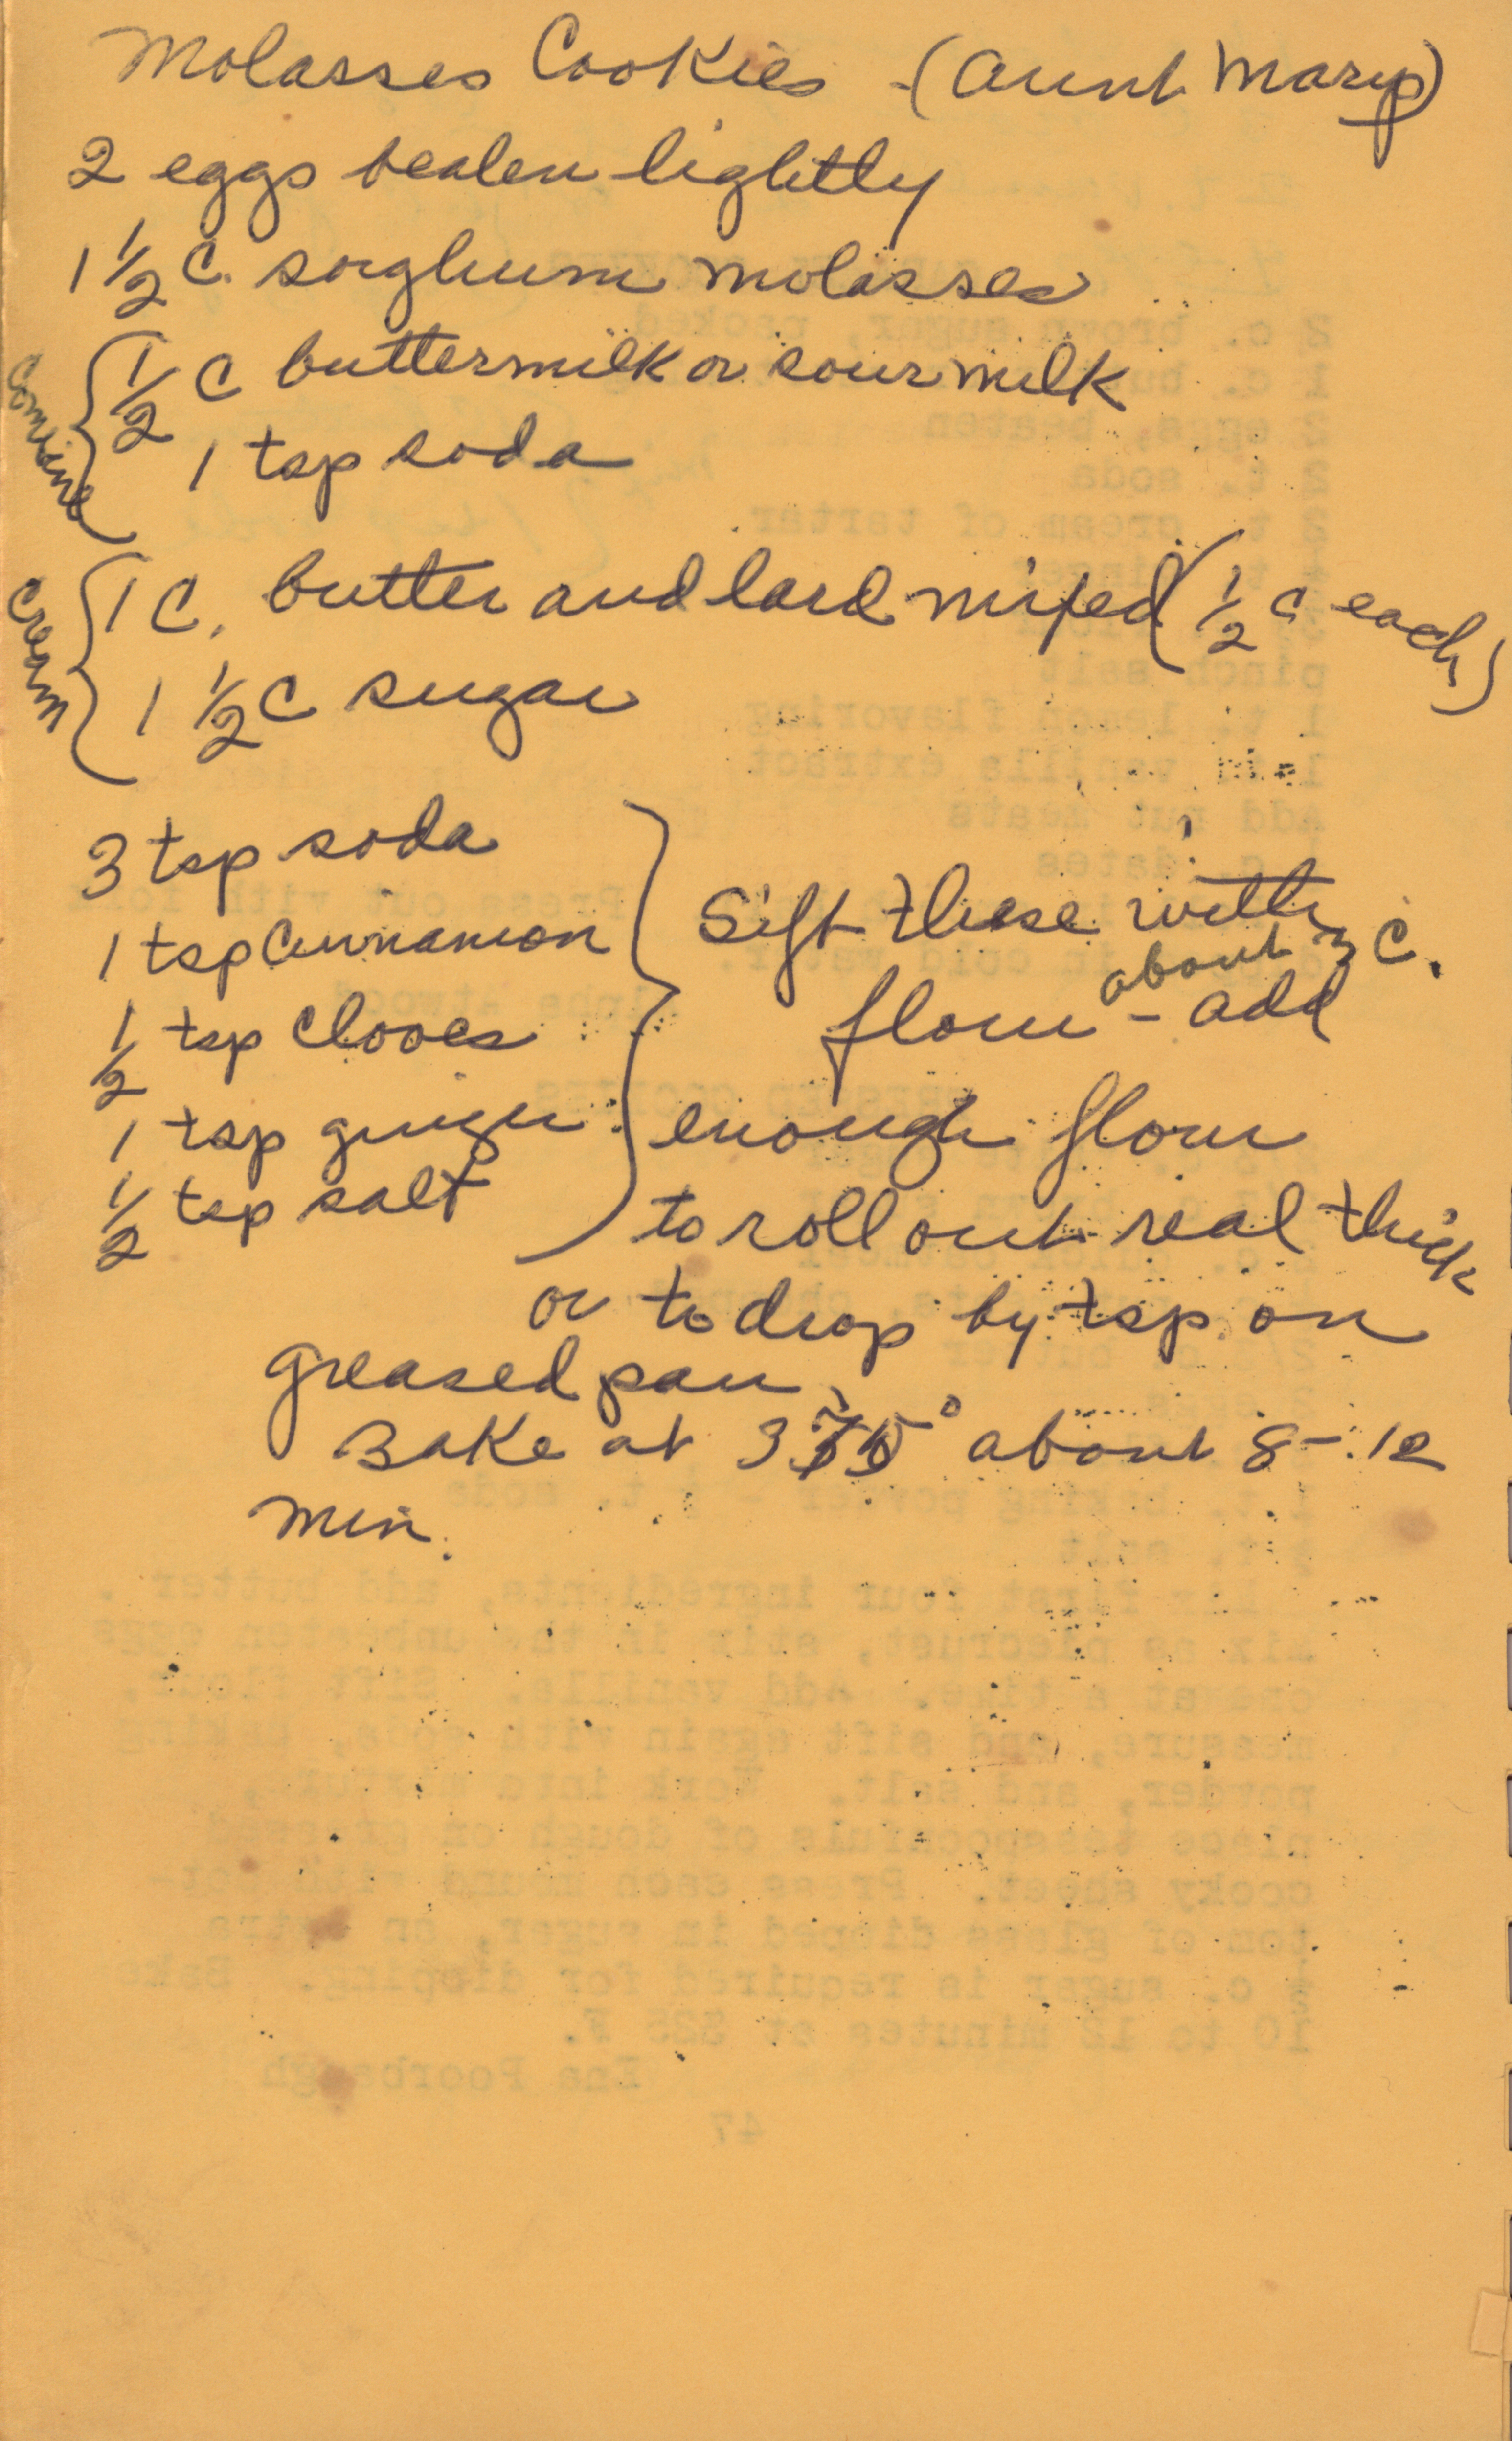 Molasses Cookies - (Aunt Mary)
2 eggs beaten lightly
1 1/2 C. sorghum molasses
Combine { 1/2 C buttermilk or sour milk
1 tsp soda
Cream { 1 C. butter and lard mixed (1/2 c each)
1 1/2 C sugar
3 tsp soda
1 tsp Cinnamon
1/2 tsp Cloves
1 tsp ginger
1/2 tsp salt
} Sift these with
about 3 C.
flour - add
enough flour
to roll out real thick
or to drop by tsp on
greased pan.
Bake at 375° about 8-12
min.